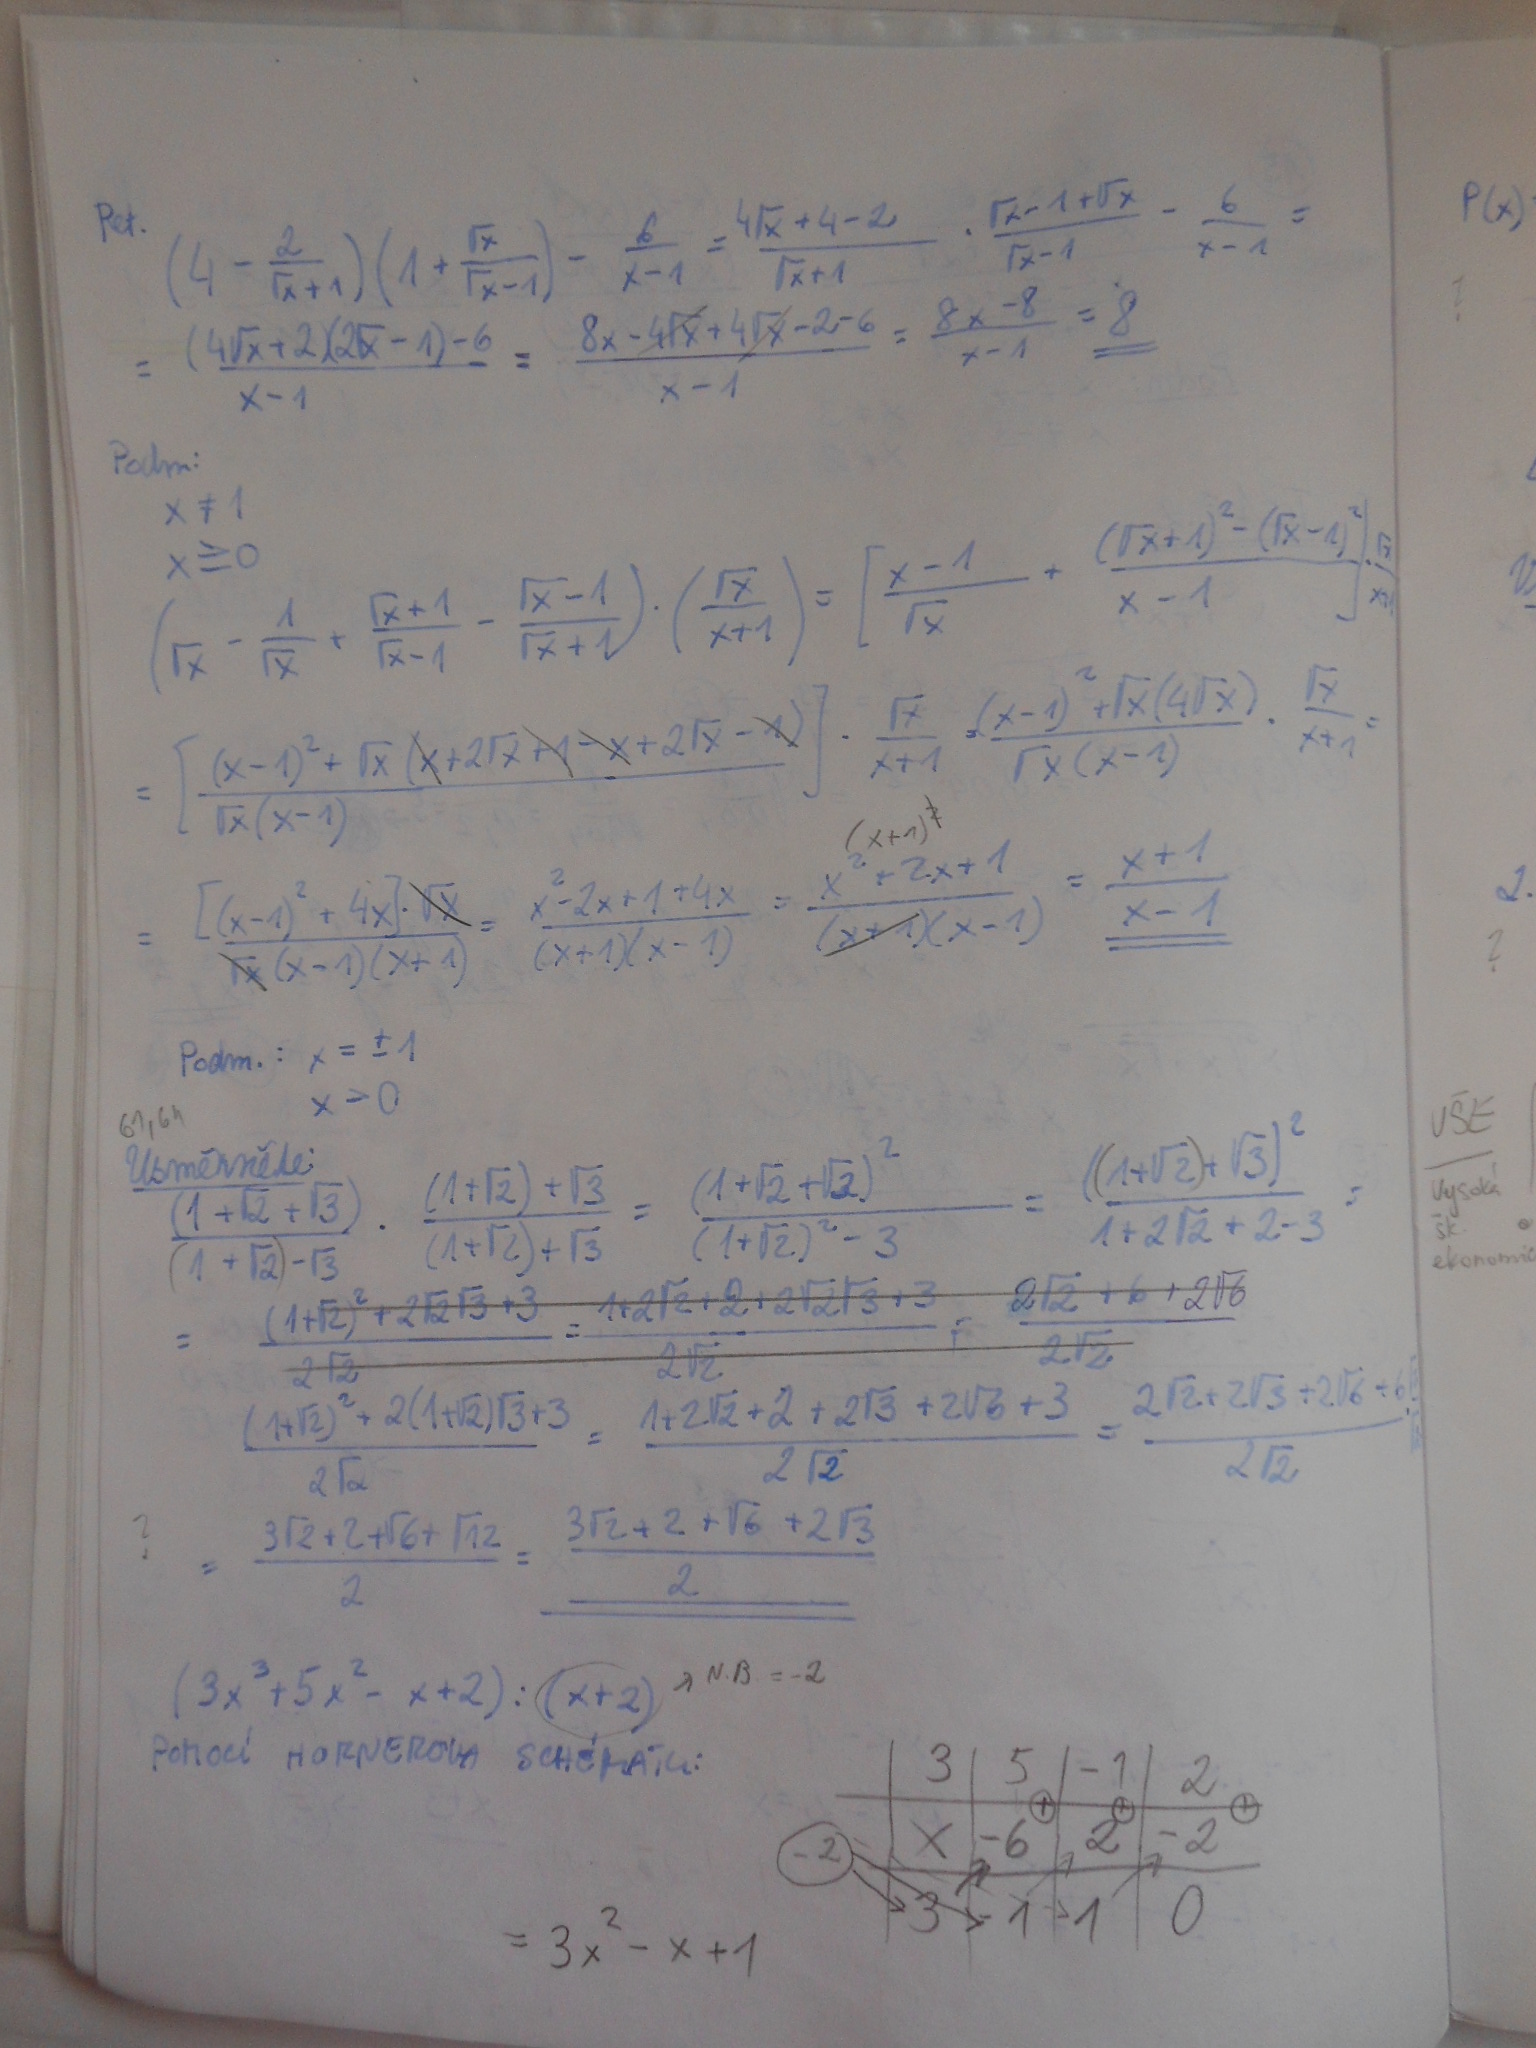 Př.
(4 - 2/(√x+1))(1 + √x/(√x-1)) - 6/(x-1) = (4√x+4-2)/(√x+1) · (√x-1+√x)/(√x-1) - 6/(x-1) =
= ((4√x+2)(2√x-1)-6)/(x-1) = (8x-4√x+4√x-2-6)/(x-1) = (8x-8)/(x-1) = 8
Podm:
x ≠ 1
x ≥ 0
(√x - 1/√x + (√x+1)/(√x-1) - (√x-1)/(√x+1)) · (√x/(x+1)) = [(x-1)/√x + ((√x+1)² - (√x-1)²)/(x-1)] · √x/(x+1)
= [((x-1)² + √x(x+2√x+1-x+2√x-1))/(√x(x-1))] · √x/(x+1) = ((x-1)²+√x(4√x))/(√x(x-1)) · √x/(x+1) =
= ([(x-1)²+4x]·√x)/(√x(x-1)(x+1)) = (x²-2x+1+4x)/((x+1)(x-1)) = (x²+2x+1)/((x+1)(x-1)) = (x+1)/(x-1)
(x+1)²
Podm.: x = ±1
x > 0
61, 64
Usměrněte:
(1+√2+√3)/((1+√2)-√3) · ((1+√2)+√3)/((1+√2)+√3) = (1+√2+√3)²/((1+√2)²-3) = ((1+√2)+√3)²/(1+2√2+2-3) =
= ((1+√2)²+2√2√3+3)/(2√2) = (1+2√2+2+2√2√3+3)/(2√2) = (2√2+6+2√6)/(2√2)
((1+√2)²+2(1+√2)√3+3)/(2√2) = (1+2√2+2+2√3+2√6+3)/(2√2) = (2√2+2√3+2√6+6)/(2√2) · √2/√2
? = (3√2+2+√6+√12)/2 = (3√2+2+√6+2√3)/2
(3x³+5x²-x+2):(x+2) → N.B. = -2
POMOCÍ HORNEROVA SCHÉMATU:
3 5 -1 2
+ + +
-2 X -6 2 -2
3 -1 1 0
= 3x²-x+1
P(x)
?
2.
?
VŠE
Vysoká
šk.